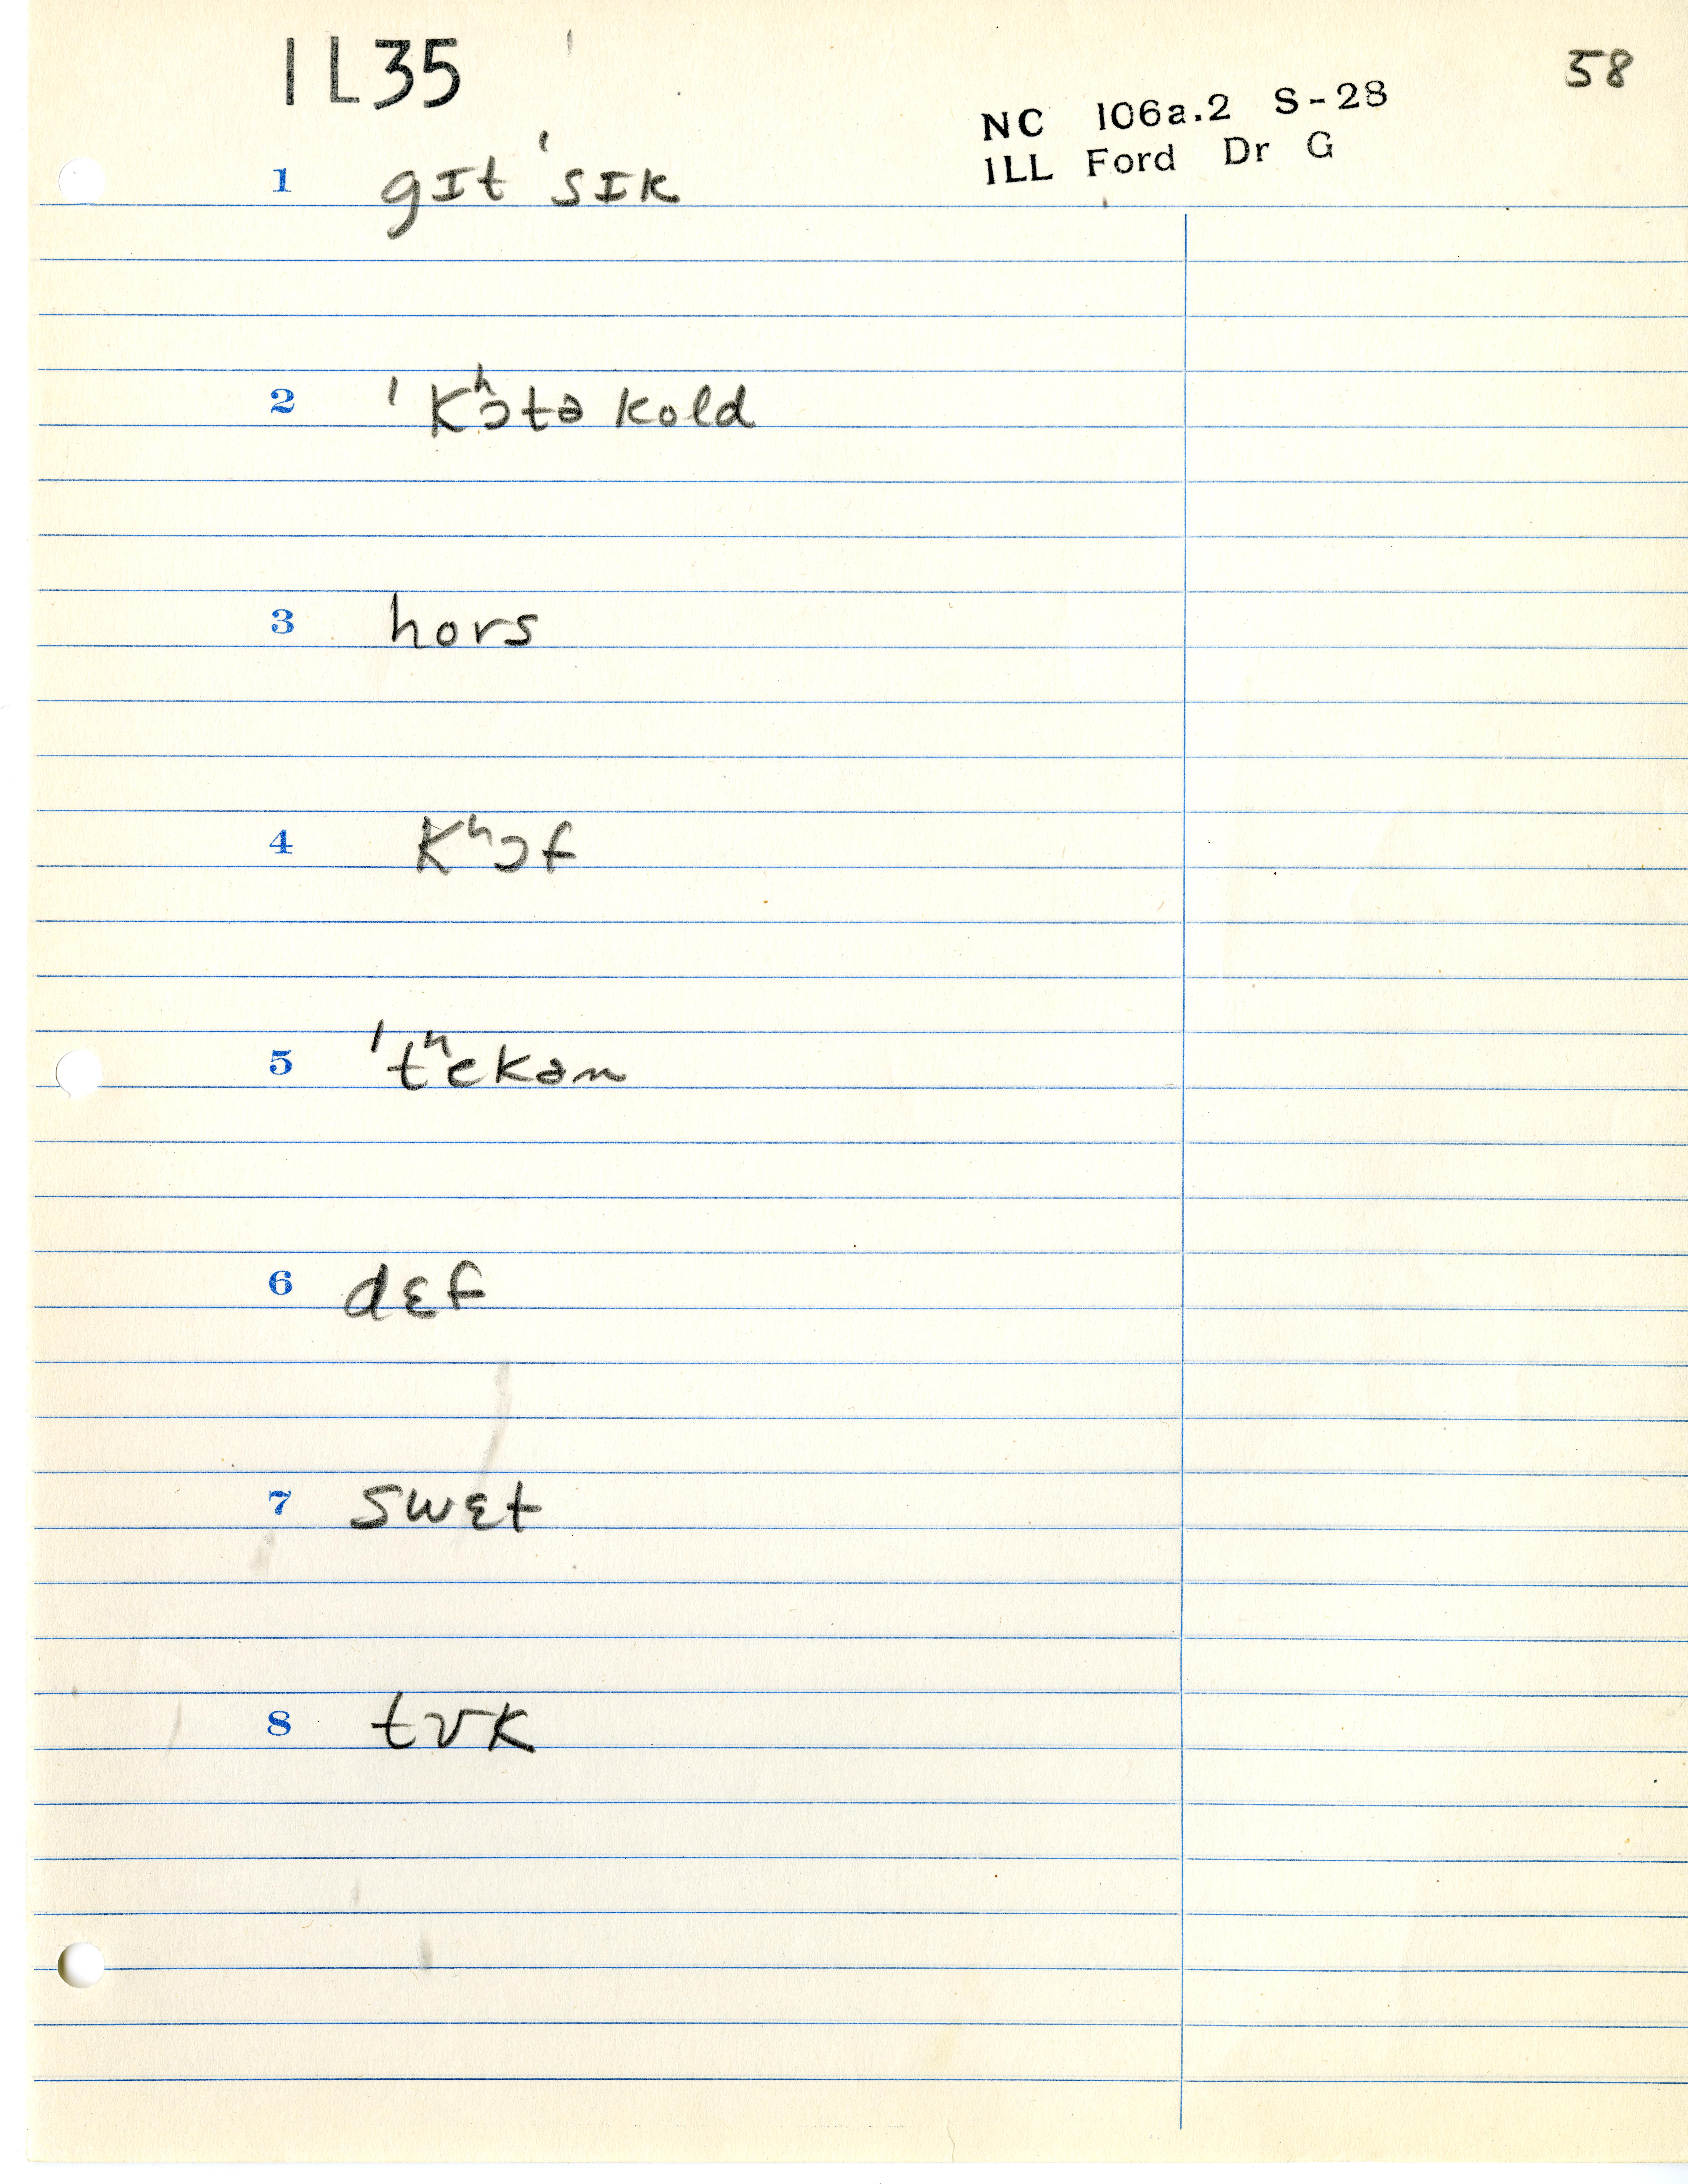 IL35
58
NC 106a.2 S-28
ILL Ford Dr G
1 gɪt ˈsɪk
2 ˈkʰɔtə kold
3 hors
4 kʰɔf
5 ˈtʰekən
6 dɛf
7 swɛt
8 tʊk